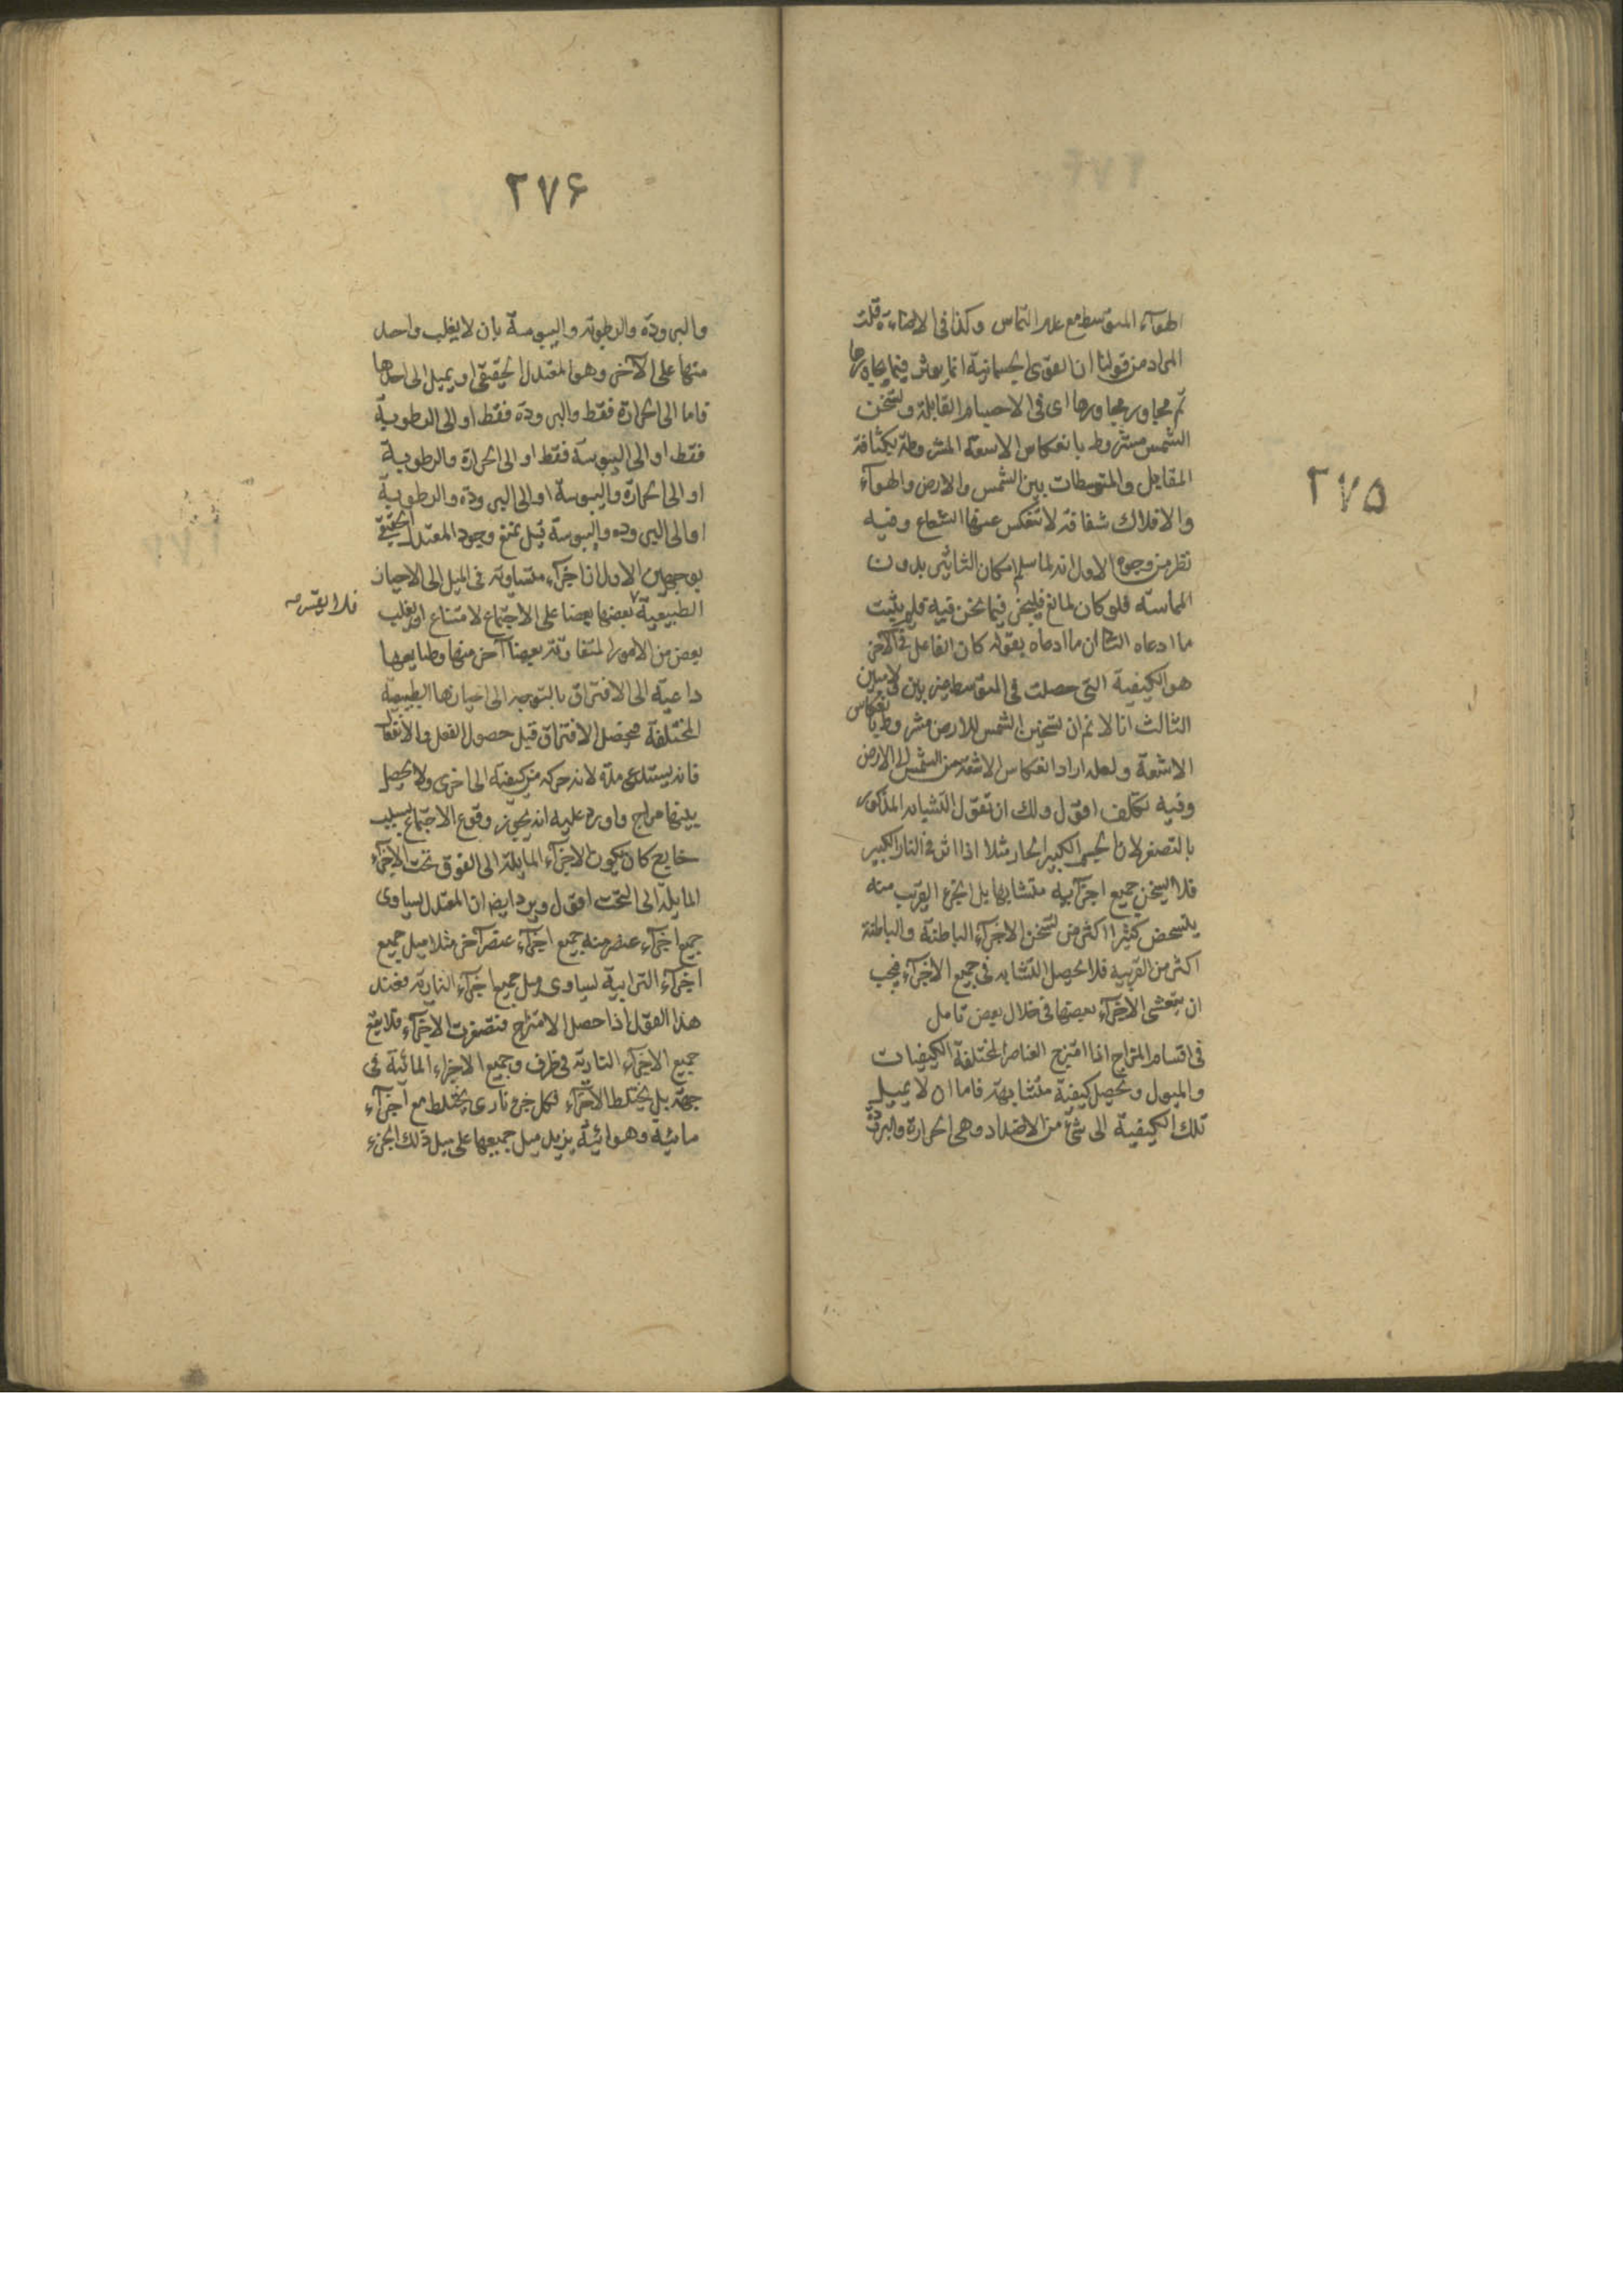 ٢٧۵
الهوآء المتوسط مع عدم التماس وكذا فى الاضاءة قلت
المراد من قولنا ان القوى الجسمانية انما يؤثر فيما يجاورها
ثم مجاور مجاورها اى فى الاجسام القابلة وتسخن
الشمس مشروط بانعكاس الاشعة المشروطة بكثافة
المقابل والمتوسطات بين الشمس والارض والهوآء
والافلاك شفافة لا تنعكس عنها الشعاع وفيه
نظر من وجوه الاول انه لما سلم امكان التاثير بدون
المماسة فلو كان لمانع فليجز فيما نحن فيه فلم يثبت
ما ادعاه الثانى ان ما ادعاه بقوله كان الفاعل فى الآخر
هو الكيفية التى حصلت فى المتوسط من بين
الثالث انا لا نم ان تسخين الشمس للارض مشروط بانعكاس
الاشعة ولعله اراد انعكاس الاشعة من الشمس الى الارض
وفيه تكلف اقول ولك ان تقول التشابه المذكور
بالتصغر لان الجسم الكبير الحار مثلا اذا اثر فى النار الكبير
فلا يسخن جميع اجزآئه متشابها بل الجزء القريب منه
يتسخن كثيرا اكثر من تسخن الاجزآء الباطنة والباطنة
اكثر من القريبة فلا يحصل التشابه فى جميع الاجزآء فيجب
ان الاجزآء بعضها فى خلال بعض تامل
فى اقسام المزاج اذا امتزج العناصر المختلفة الكيفيات
والميول وتحصل كيفية متشابهة فاما ان لا يميل
تلك الكيفية الى شئ من الاضداد وهى الحرارة والبرودة
٢٧۶
والبرودة والرطوبة واليبوسة بان لا يغلب واحد
منها على الآخر وهو المعتدل الحقيقى او يميل الى احدها
فاما الى الحرارة فقط والبرودة فقط او الى الرطوبة
فقط او الى اليبوسة فقط او الى الحرارة والرطوبة
او الى الحرارة واليبوسة او الى البرودة والرطوبة
او الى البرودة واليبوسة قيل يمنع وجود المعتدل الحقيقى
بوجهين الاول ان اجزآء متساوية فى الميل الى الاحياز
الطبيعية بعضها بعضا على الاجتماع لامتناع ان يغلب
فلا يقسر صه
بعض من الامور المتقاوتة بعضا آخر منها وطبايعها
داعية الى الافتراق بالتوجه الى احيازها الطبيعية
المختلفة فيحصل الافتراق قبل حصول الفعل والانفعال
فانه يستدعى مدة لانه حركة من كيفية الى اخرى ولا يحصل
بينها مزاج واورد عليه انه يجوز وقوع الاجتماع بسبب
خارج كان يكون الاجزآء المايلة الى الفوق تحت الاجزآء
المايلة الى التحت اقول ويرد ايضا ان المعتدل يساوى
جميع اجزآء عنصر منه جميع اجزآء عنصر آخر مثلا ميل جميع
اجزآء الترابية يساوى ميل جميع اجزآء النارية فعند
هذا القول اذا حصل الامتزاج فتصغرت الاجزآء فلا يقع
جميع الاجزآء النارية فى طرف وجميع الاجزاء المائية فى
جهة بل يختلط الاجزآء فكل جزء نارى يختلط مع اجزآء
مائية وهوائية يزيد ميل جميعها على ميل ذلك الجزء